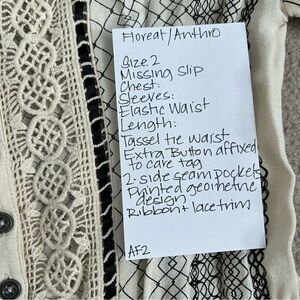 Floreat/Anthro
Size 2
Missing Slip
Chest:
Sleeves:
Elastic Waist
Length:
Tassel tie waist
Extra Button affixed
to care tag
2-side seam pockets
Painted geometric
design
Ribbon + lace trim
AF2